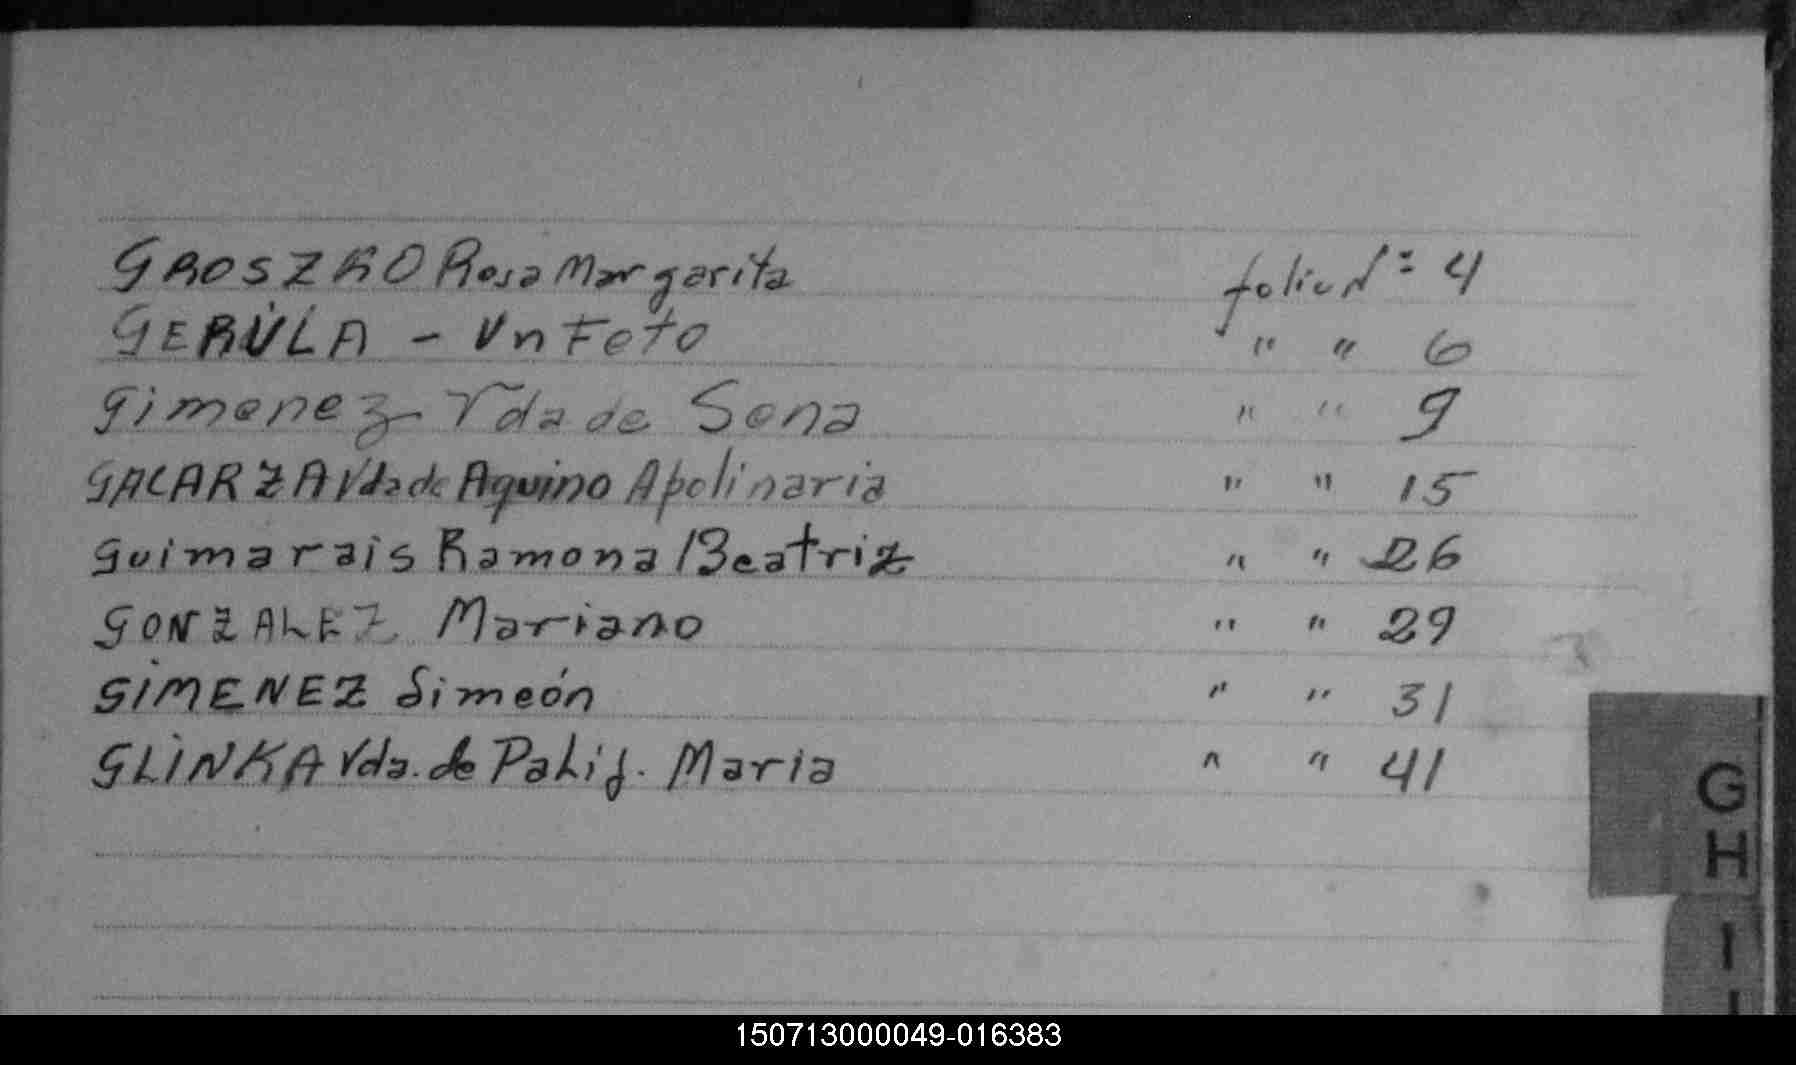 GROSZKO Rosa Margarita folio Nº 4
GERULA - Un Feto " " 6
Gimenez Vda de Sena " " 9
GALARZA Vda de Aquino Apolinaria " " 15
Guimarais Ramona Beatriz " " 26
GONZALEZ Mariano " " 29
GIMENEZ Simeón " " 31
GLINKA Vda. de Maria " " 41
G
H
I
150713000049-016383